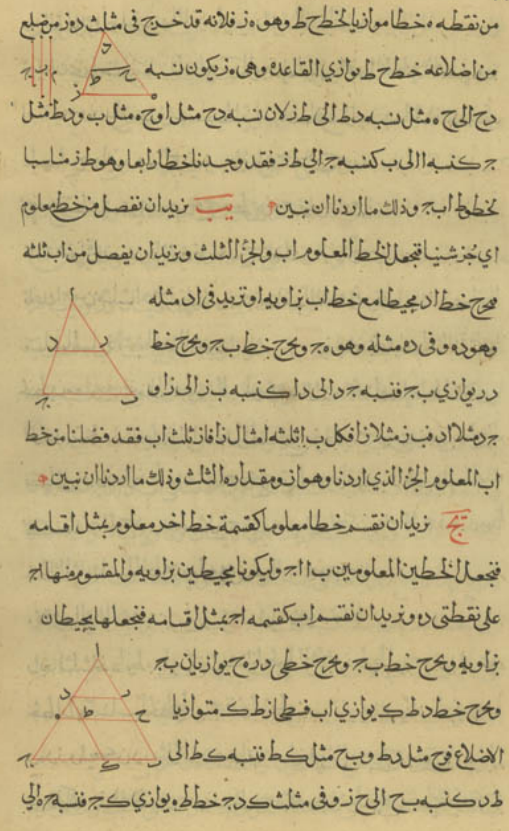 من نقطه ه خطا موازيا لخط ح ط وهو ه ز فلانه قد خرج في مثلث د ه ز من ضلع
من اضلاعه خط ح ط يوازي القاعده وهي ه ز يكون نسبه
د ح الي ح ه مثل نسبه د ط الي ط ز لان نسبه د ح مثل ا و ح ه مثل ب و د ط مثل
ج كنسبه ا الي ب كنسبه ج الي ط ز فقد وجدنا خطا رابعا وهو ط ز مناسبا
لخطوط ا ب ج وذلك ما اردنا ان نبين يب نريد ان نفصل من خط معلوم
اي جزء شينا فنجعل الخط المعلوم ا ب والجزء الثلث ونريد ان يفصل من ا ب ثلثه
فنخرج خط ا د محيطا مع خط ا ب بزاويه ا ونزيد في ا د مثله
وهو د ه وفي د ه مثله وهو ه ج ونخرج خط ب ج ونخرج خط
د ز يوازي ب ج فنسبه ج د الي د ا كنسبه ب ز الي ز ا و
ج د مثلا ا د ف ب ز مثلا ز ا فكل ب ا ثلثه امثال ز ا فا ز ثلث ا ب فقد فصلنا من خط
ا ب المعلوم الجزء الذي اردنا وهو ا ز ومقداره الثلث وذلك ما اردنا ان نبين
يج نريد ان نقسم خطا معلوما كقسمة خط اخر معلوم بمثل اقسامه
فنجعل الخطين المعلومين ب ا ا ج وليكونا محيطين بزاويه والمقسوم منها ا ج
علي نقطتي د ه ونريد ان نقسم ا ب كقسمه ا ج بمثل اقسامه فنجعلها يحيطان
بزاويه ونخرج خط ب ج ونخرج خطي د ز ه ح يوازيان ب ج
ونخرج خط د ط ك يوازي ا ب فسطحا ز ط ط ك متوازيا
الاضلاع فز ح مثل د ط و ب ح مثل ك ط فنسبه ك ط الي
ط د كنسبه ب ح الي ح ز وفي مثلث ك د ج خط ط ه يوازي ك ج فنسبه ج ه الي